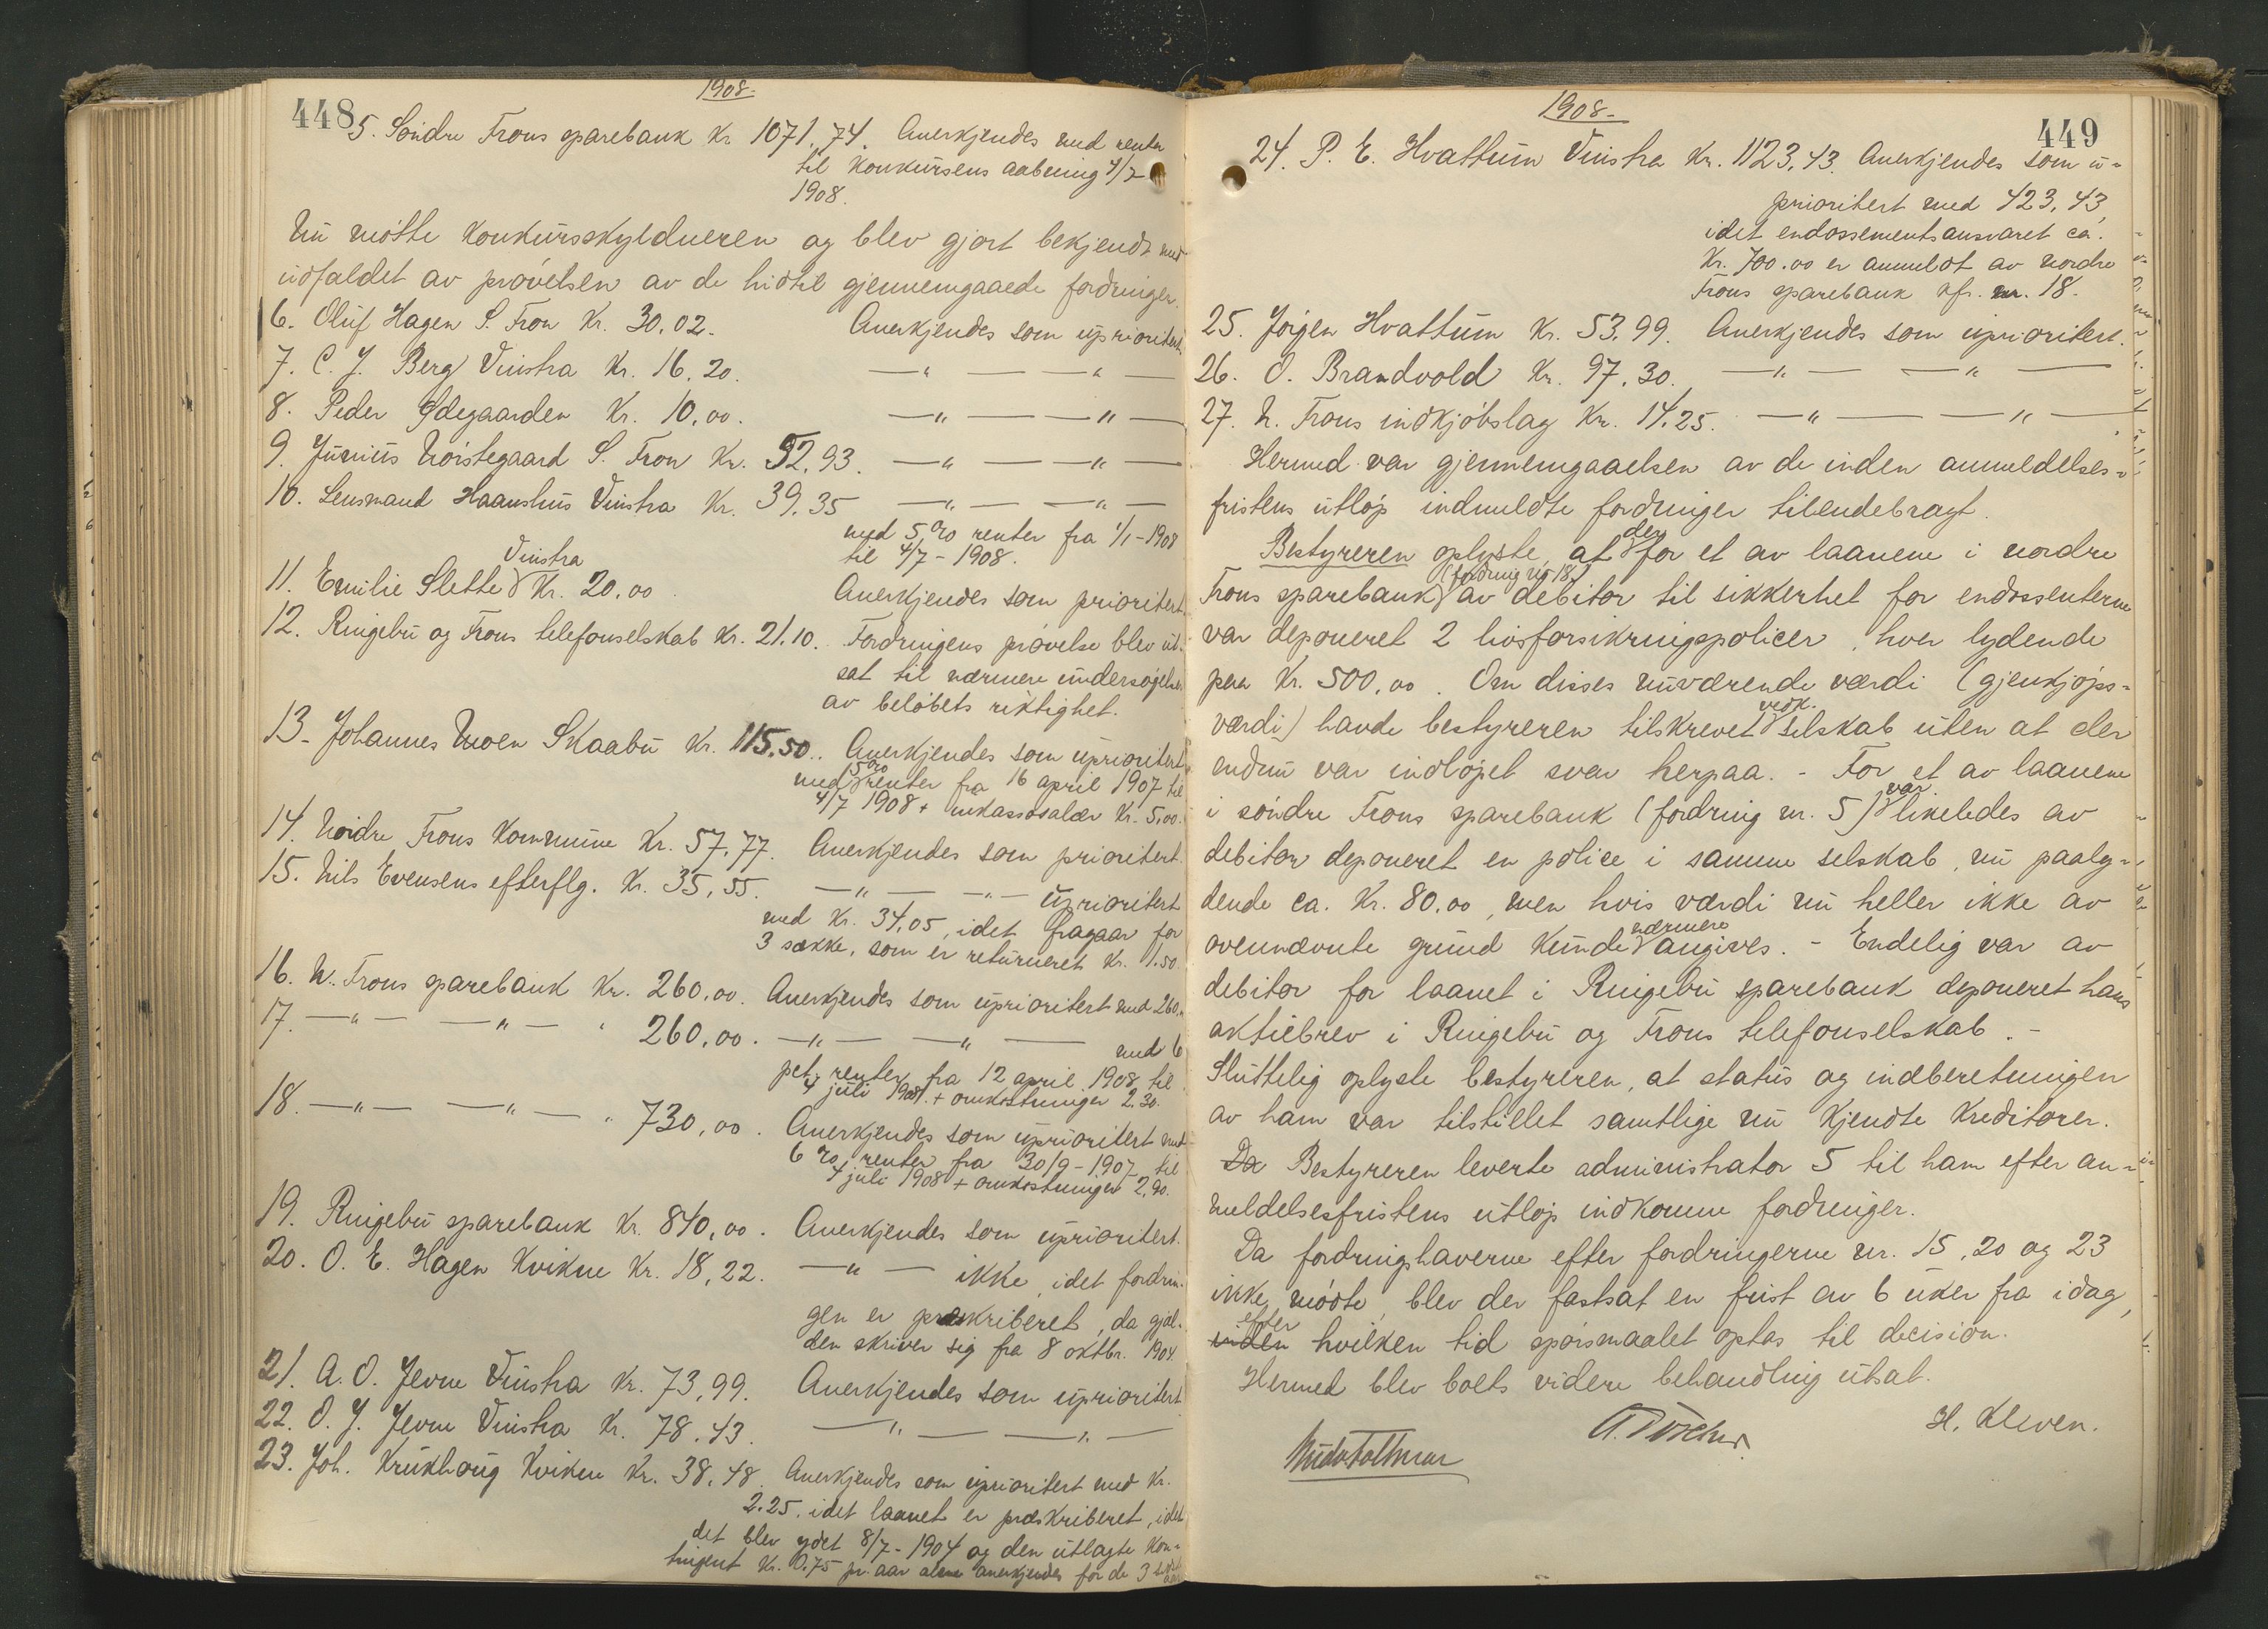 1908.
448
5. Søndre Frons sparebank Kr. 1071,74. Anerkjendes med renter
til Konkursens aabning 4/7
1908.
Nu møtte Konkursskyldneren og blev gjort bekjendt med
udfaldet av prøvelsen av de hidtil gjennemgaaede fordringer.
6. Oluf Hagen S. Fron Kr. 30.02. Anerkjendes som uprioritert
7. C. J. Berg Vinstra Kr. 16.20. —„— —„—
8. Peder Ødegaarden Kr. 10,00. —„— —„—
9. Junius Nørstegaard S. Fron Kr. 52,93. —„— —„—
10. Lensmand Haanshus Vinstra Kr. 39.35 —„— —„—
med 5 % renter fra 1/1-1908
til 4/7-1908.
Vinstra
11. Emilie Slette Kr. 20.00. Anerkjendes som prioritert
12. Ringebu og Frons telefonselskab Kr. 21.10. Fordringens prøvelse blev ut-
sat til nærmere undersøgelse
av beløbets riktighet.
13. Johannes Moen Skaabu Kr. 115.50. Anerkjendes som uprioritert
5 %
med renter fra 16 april 1907 til
4/7 1908 + inkassosalær Kr. 5,00.
14. Nordre Frons Kommune Kr. 57,77. Anerkjendes som prioritert.
15. Nils Evensens efterflg. Kr. 35,55. —„— —„— uprioritert
med Kr. 34,05, idet fragaar for
3 sække, som er returneret Kr. 1.50.
16. N. Frons sparebank Kr. 260,00. Anerkjendes som uprioritert med 260,
17. —„— —„— „ 260,00. —„— —„— med 6
pct. renter fra 12 april 1908 til
4 juli 1908. + omkostninger 2.30.
18. —„— —„— „ 730,00. Anerkjendes som uprioritert med
6 % renter fra 30/9-1907 til
4 juli 1908 + omkostninger 2,90.
19. Ringebu sparebank Kr. 840,00. Anerkjendes som uprioritert.
20. O. E. Hagen Kvikne Kr. 18,22. —„— ikke, idet fordrin-
gen er præskriberet, da gjæl-
den skriver sig fra 8 oktbr. 1904.
21. A. O. Jevne Vinstra Kr. 73,99. Anerkjendes som uprioritert
22. O. J. Jevne Vinstra Kr. 78.43. —„— —„—
23. Joh. Krukhaug Kvikne Kr. 38,48. Anerkjendes som uprioritert med Kr.
2.25. idet laanet er præskriberet, idet
det blev ydet 8/7-1904 og den utlagte Kon-
tingent Kr. 0.75 pr. aar alene anerkjendes for de 3 sidste
aar
1908.
449
24. P. E. Hvattum Vinstra Kr. 1123,43. Anerkjendes som u-
prioritert med 423,43,
idet endossementsansvaret ca.
Kr. 700.00 er anmeldt av nordre
Frons sparebank kfr. nr. 18.
25. Jørgen Hvattum Kr. 53,99. Anerkjendes som uprioritert.
26. O. Brandvold Kr. 97.30. —„— —„—
27. N. Frons indkjøbslag Kr. 14.25. —„— —„—
Hermed var gjennemgaaelsen av de inden anmeldelses-
fristens utløp indmeldte fordringer tilendebragt.
der
Bestyreren oplyste, at for et av laanene i nordre
(fordring nr. 18)
Frons sparebank av debitor til sikkerhet for endossenterne
var deponeret 2 livsforsikringspolicer, hver lydende
paa Kr. 500,00. Om disses nuværende værdi (gjenkjøps-
vedk.
værdi) havde bestyreren tilskrevet selskab uten at der
endnu var indløpet svar herpaa. - For et av laanene
var
i søndre Frons sparebank (fordring nr. 5) likeledes av
debitor deponeret en police i samme selskab, nu paaly-
dende ca. Kr. 80.00, men hvis værdi nu heller ikke av
nærmere
ovennævnte grund kunde angives. - Endelig var av
debitor for laanet i Ringebu sparebank deponeret hans
aktiebrev i Ringebu og Frons telefonselskab. -
Sluttelig oplyste bestyreren, at status og indberetningen
av ham var tilstillet samtlige nu kjendte kreditorer.
Da Bestyreren leverte administrator 5 til ham efter an-
meldelsesfristens utløp indkomne fordringer.
Da fordringshaverne efter fordringerne nr. 15, 20 og 23
ikke mødte, blev der fastsat en frist av 6 uker fra idag,
efter
inden hvilken tid spørsmaalet optas til decision.
Hermed blev boets videre behandling utsat.
H. Kleven.